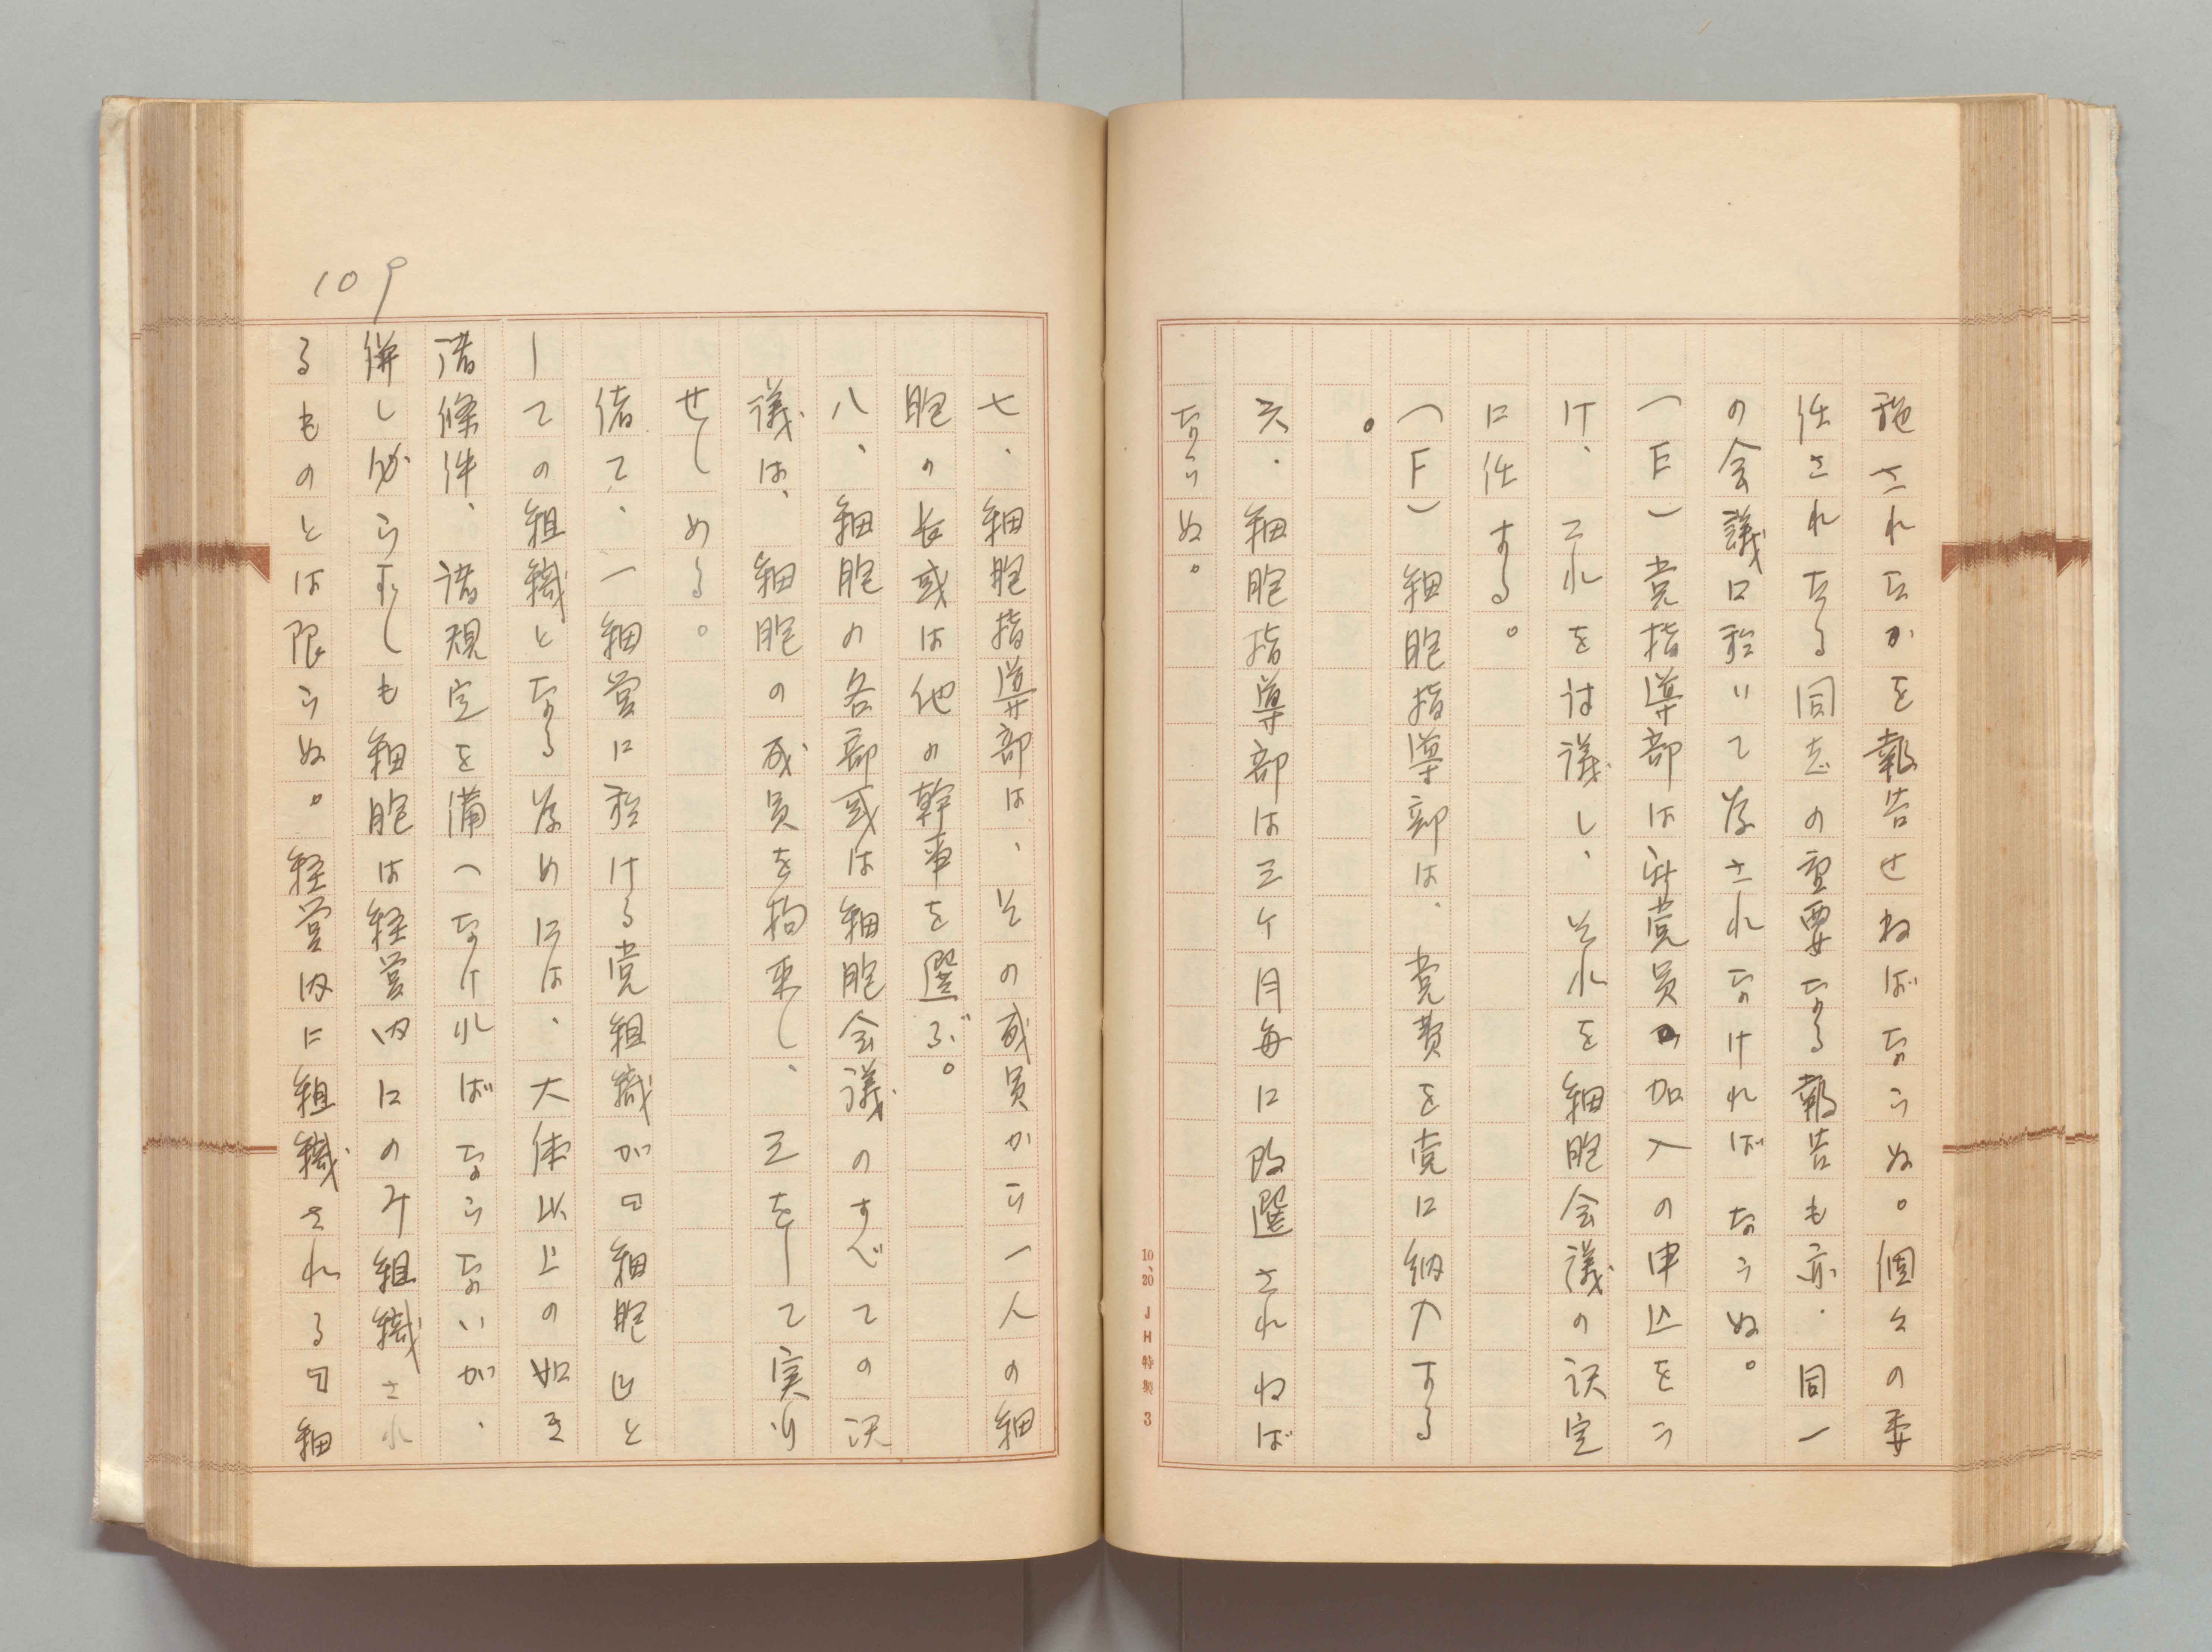 施されたかを報告せねばならぬ。個々の委
任されたる同志の重要なる報告も亦、同一
の会議に於いて為されなければならぬ。
(E)党指導部は新党員の加入の申込をう
け、これを討議し、それを細胞会議の決定
に任する。
(F)細胞指導部は、党費を党に納入する
。
六、細胞指導部は三ケ月毎に改選されねば
ならぬ。
10、20 JH特製 3
七、細胞指導部は、その成員から一人の細
胞の長或は他の幹事を選ぶ。
八、細胞の各部或は細胞会議のすべての決
議は、細胞の成員を拘束し、之をして実行
せしめる。
偖て、一細営に於ける党組織が『細胞』と
しての組織となる為めには、大体以上の如き
諸條件、諸規定を備へなければならないが、
併し必らずしも細胞は経営内にのみ組織され
るものとは限らぬ。経営内に組織される『細
109